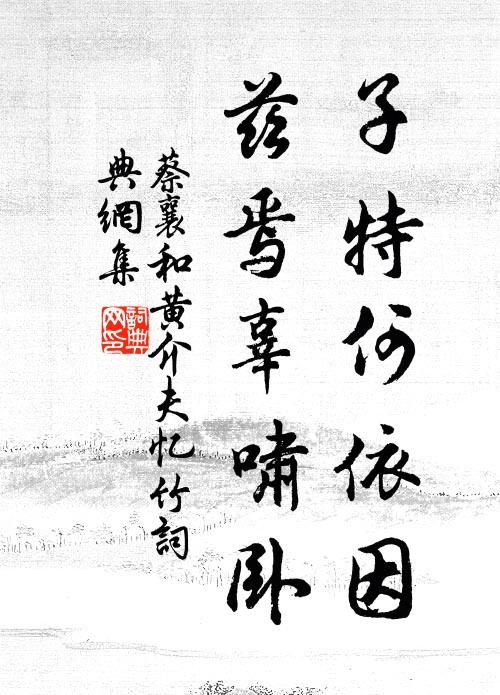 子特何依因
茲焉辜嘯卧
蔡襄和黃介夫忆竹詞
典網集
詞典
网印